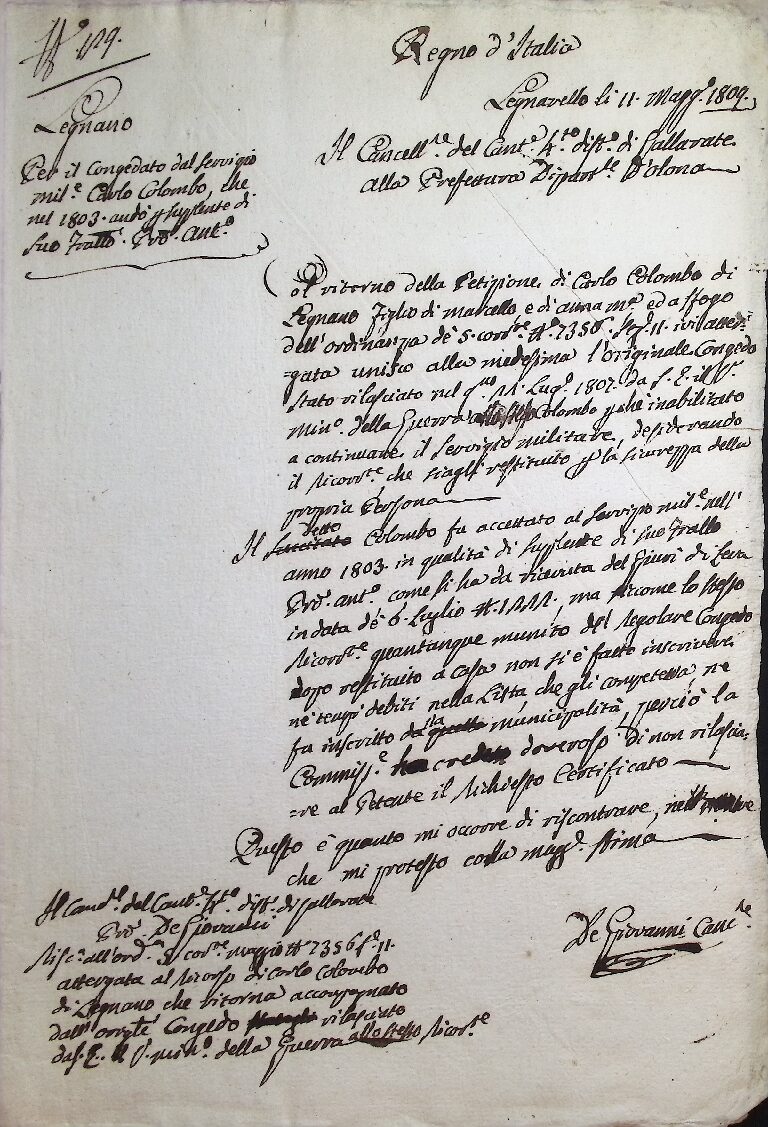 N.° 129.
Legnano
Per il Congedato dal servigio
mil.e Carlo Colombo, che
nel 1803. andò supplente di
suo Fratto. Gio. Ant.o
Regno d'Italia
Legnarello li 11. Magg.o 1809.
Il Cancell.re del Cant.e 4.to dist.o di Gallarate
alla Prefettura Dipart.le d'Olona
Col ritorno della Petizione di Carlo Colombo di
Legnano figlio di marcello e di anna m.a ed a sfogo
dell'ordinanza de 5. corr.te N.° 7356. Sez. 11. ivi atter-
=gata unisco alla medesima l'originale Congedo
stato rilasciato nel g.no 11. Lug.o 1807. da S. E. il S.r
Min.o della Guerra Colombo p.chè inabilitato
a continuare il servigio militare, desiderando
il Ricorr.te che siagli restituito p. la sicurezza della
propria Persona
Il succitato detto Colombo fu accettato al servigio mil.e nell'
anno 1803. in qualità di supplente di suo Fratto
Gio. Ant.o come si ha da ricevuta del Giurì di Leva
in data de 6. Luglio N. 1111, ma siccome lo stesso
Ricorr.te quantunque munito del regolare Congedo
dopo restituito a Casa non si è fatto inscrivere
ne' tempi debiti nella Lista che gli competeva, ne
fu inscritto dalla quella municipalità, perciò la
Commiss.e ha creduto doveroso di non rilascia-
=re al Petente il Richiesto Certificato
Questo è quanto mi occorre di riscontrare, nell'
che mi protesto colla magg.r stima
De Giovanni Canc.re
Il Canc.re del Cant.e 4.to dist.o di Gallarate
Gio. De Giovanni
Risc.a all'ord.za 5. cor.te maggio N. 7356 S. 11.
attergata al Ricorso di Carlo Colombo
di Legnano che ritorna accompagnato
dall' orig.le Congedo rilasciato
da S. E. il S. min.o della Guerra allo stesso Ricor.te